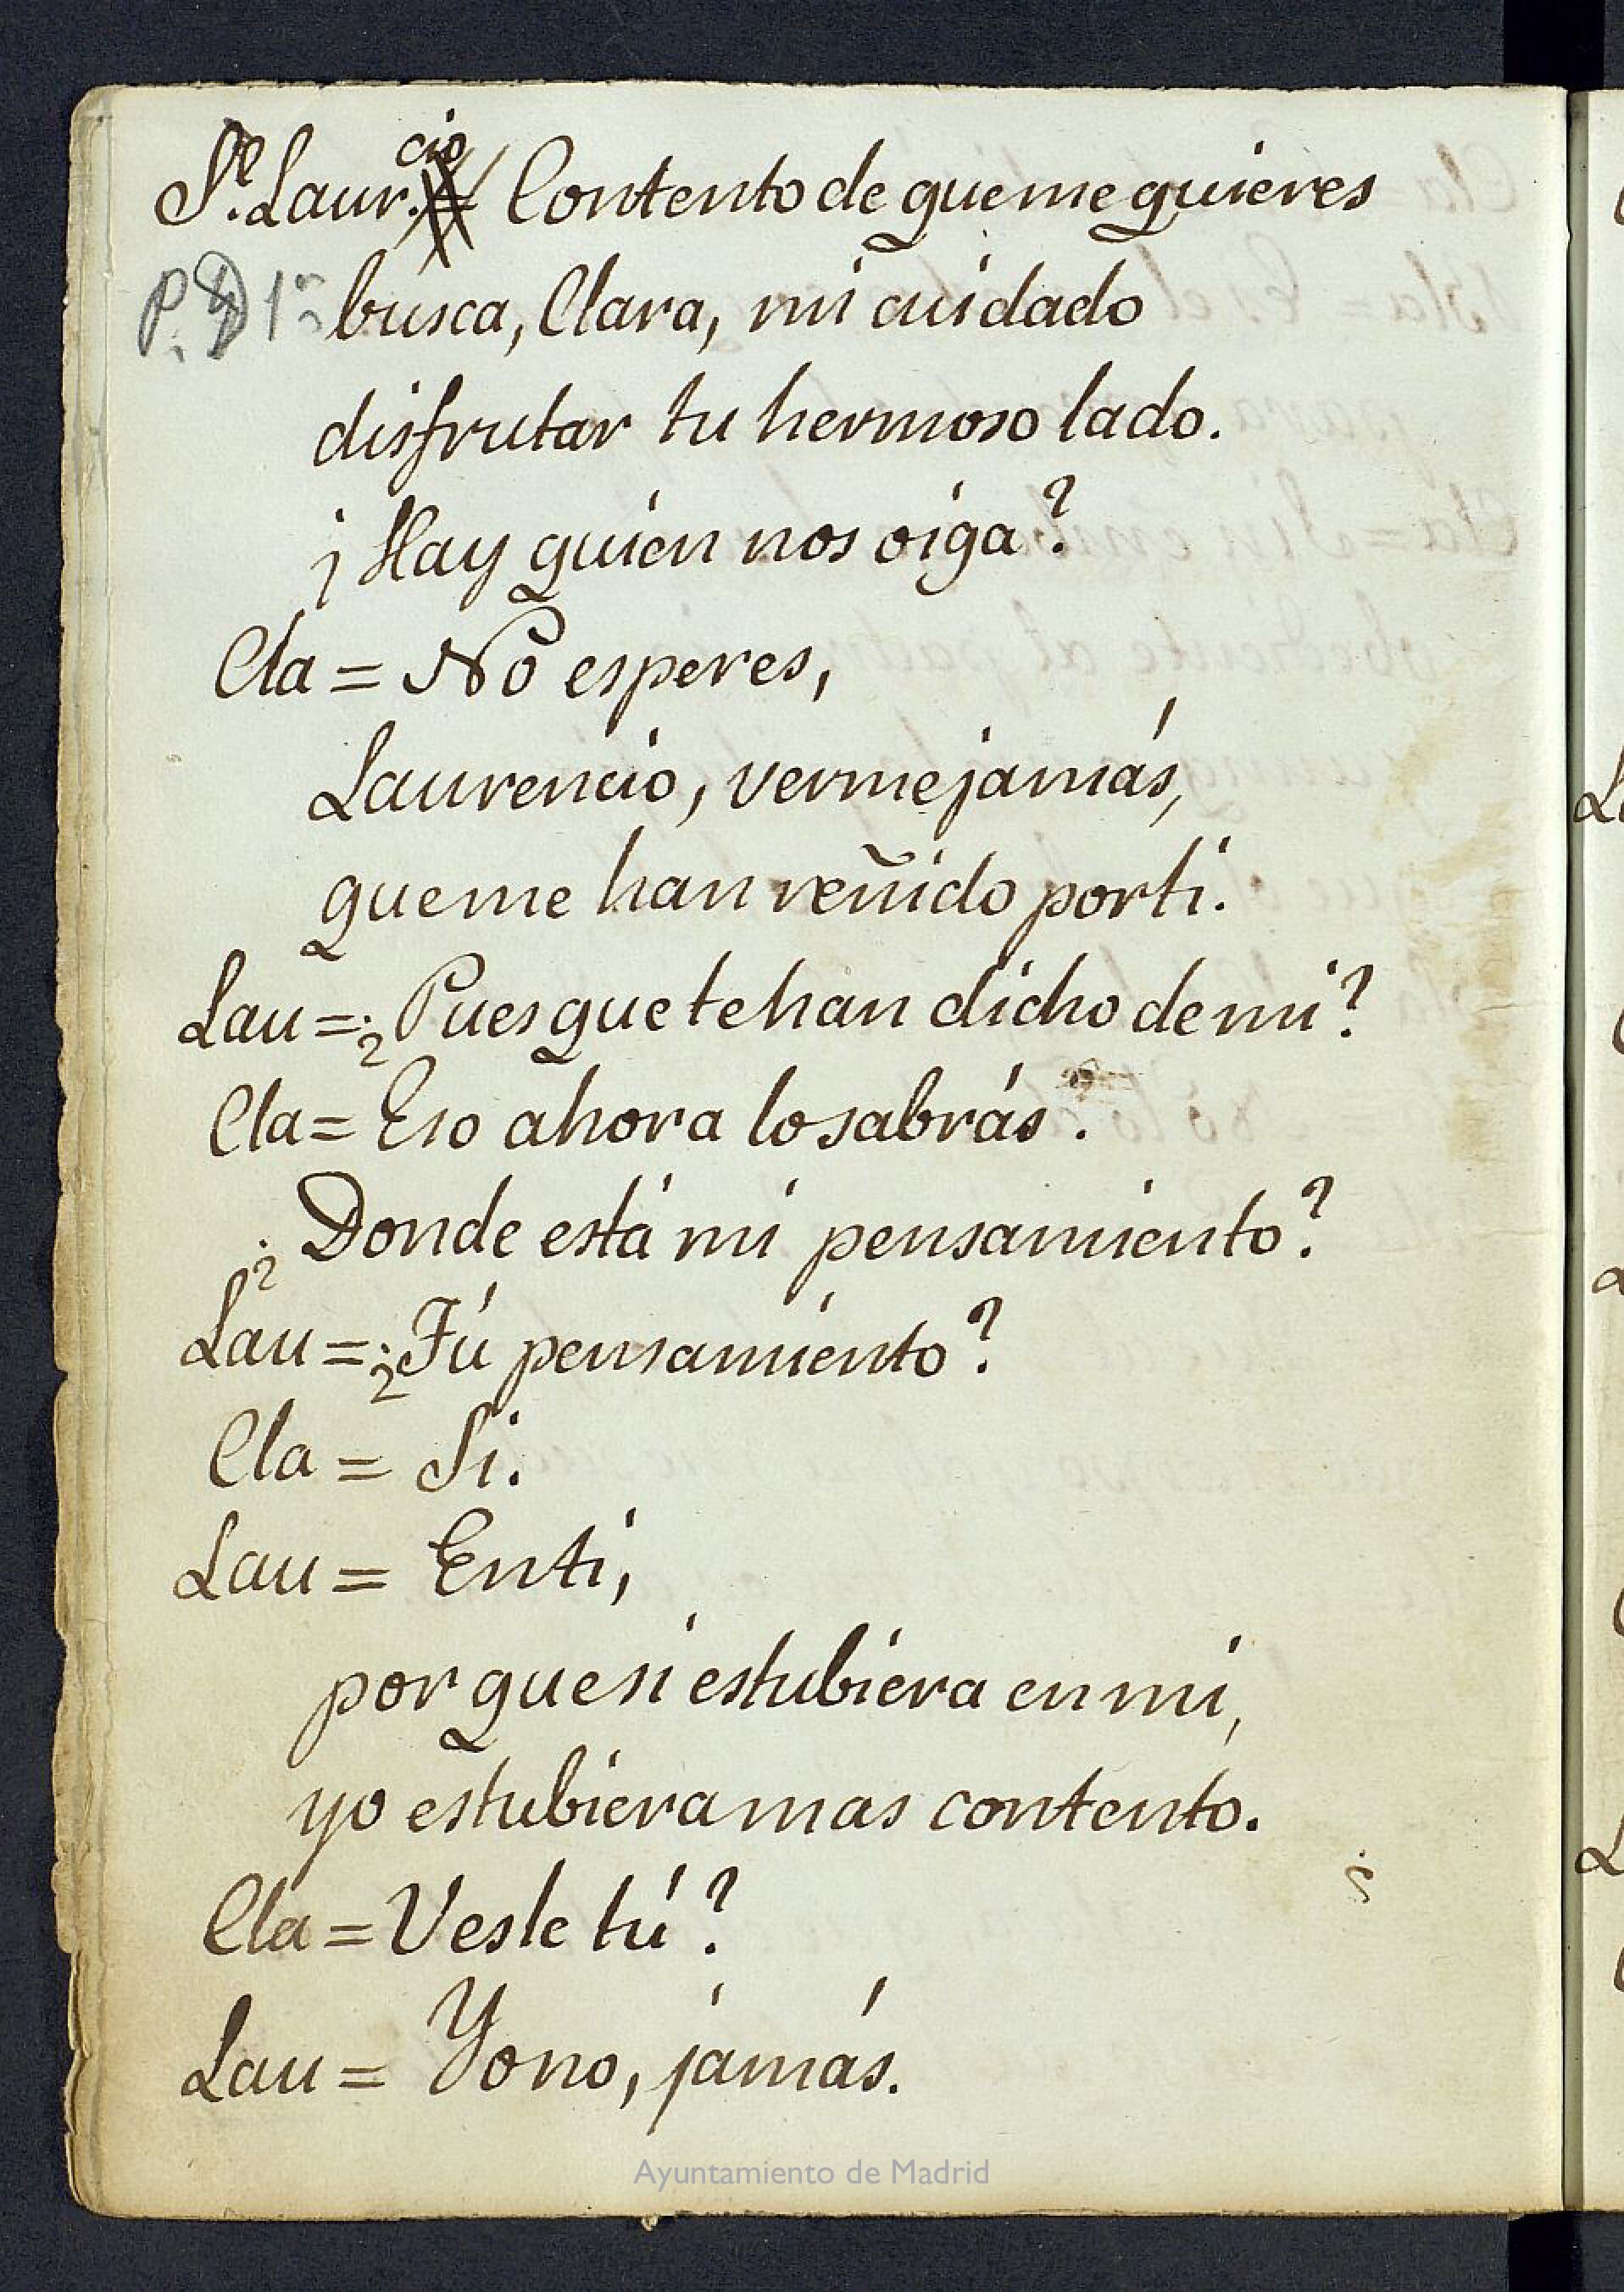 Sᵉ Laur.cio Contento de que me quieres
P. D 1ª busca, Clara, mi cuidado
disfrutar tu hermoso lado.
¡Hay quien nos oiga?
Cla = No esperes,
Laurencio, verme jamás,
que me han reñido por ti.
Lau = ¿Pues que te han dicho de mi?
Cla = Eso ahora lo sabrás.
¿Donde está mi pensamiento?
Lau = ¿Tú pensamiento?
Cla = Si.
Lau = En ti,
por que si estubiera en mi,
yo estubiera mas contento.
Cla = Vesle tú?
Lau = Yo no, jamás.
Ayuntamiento de Madrid